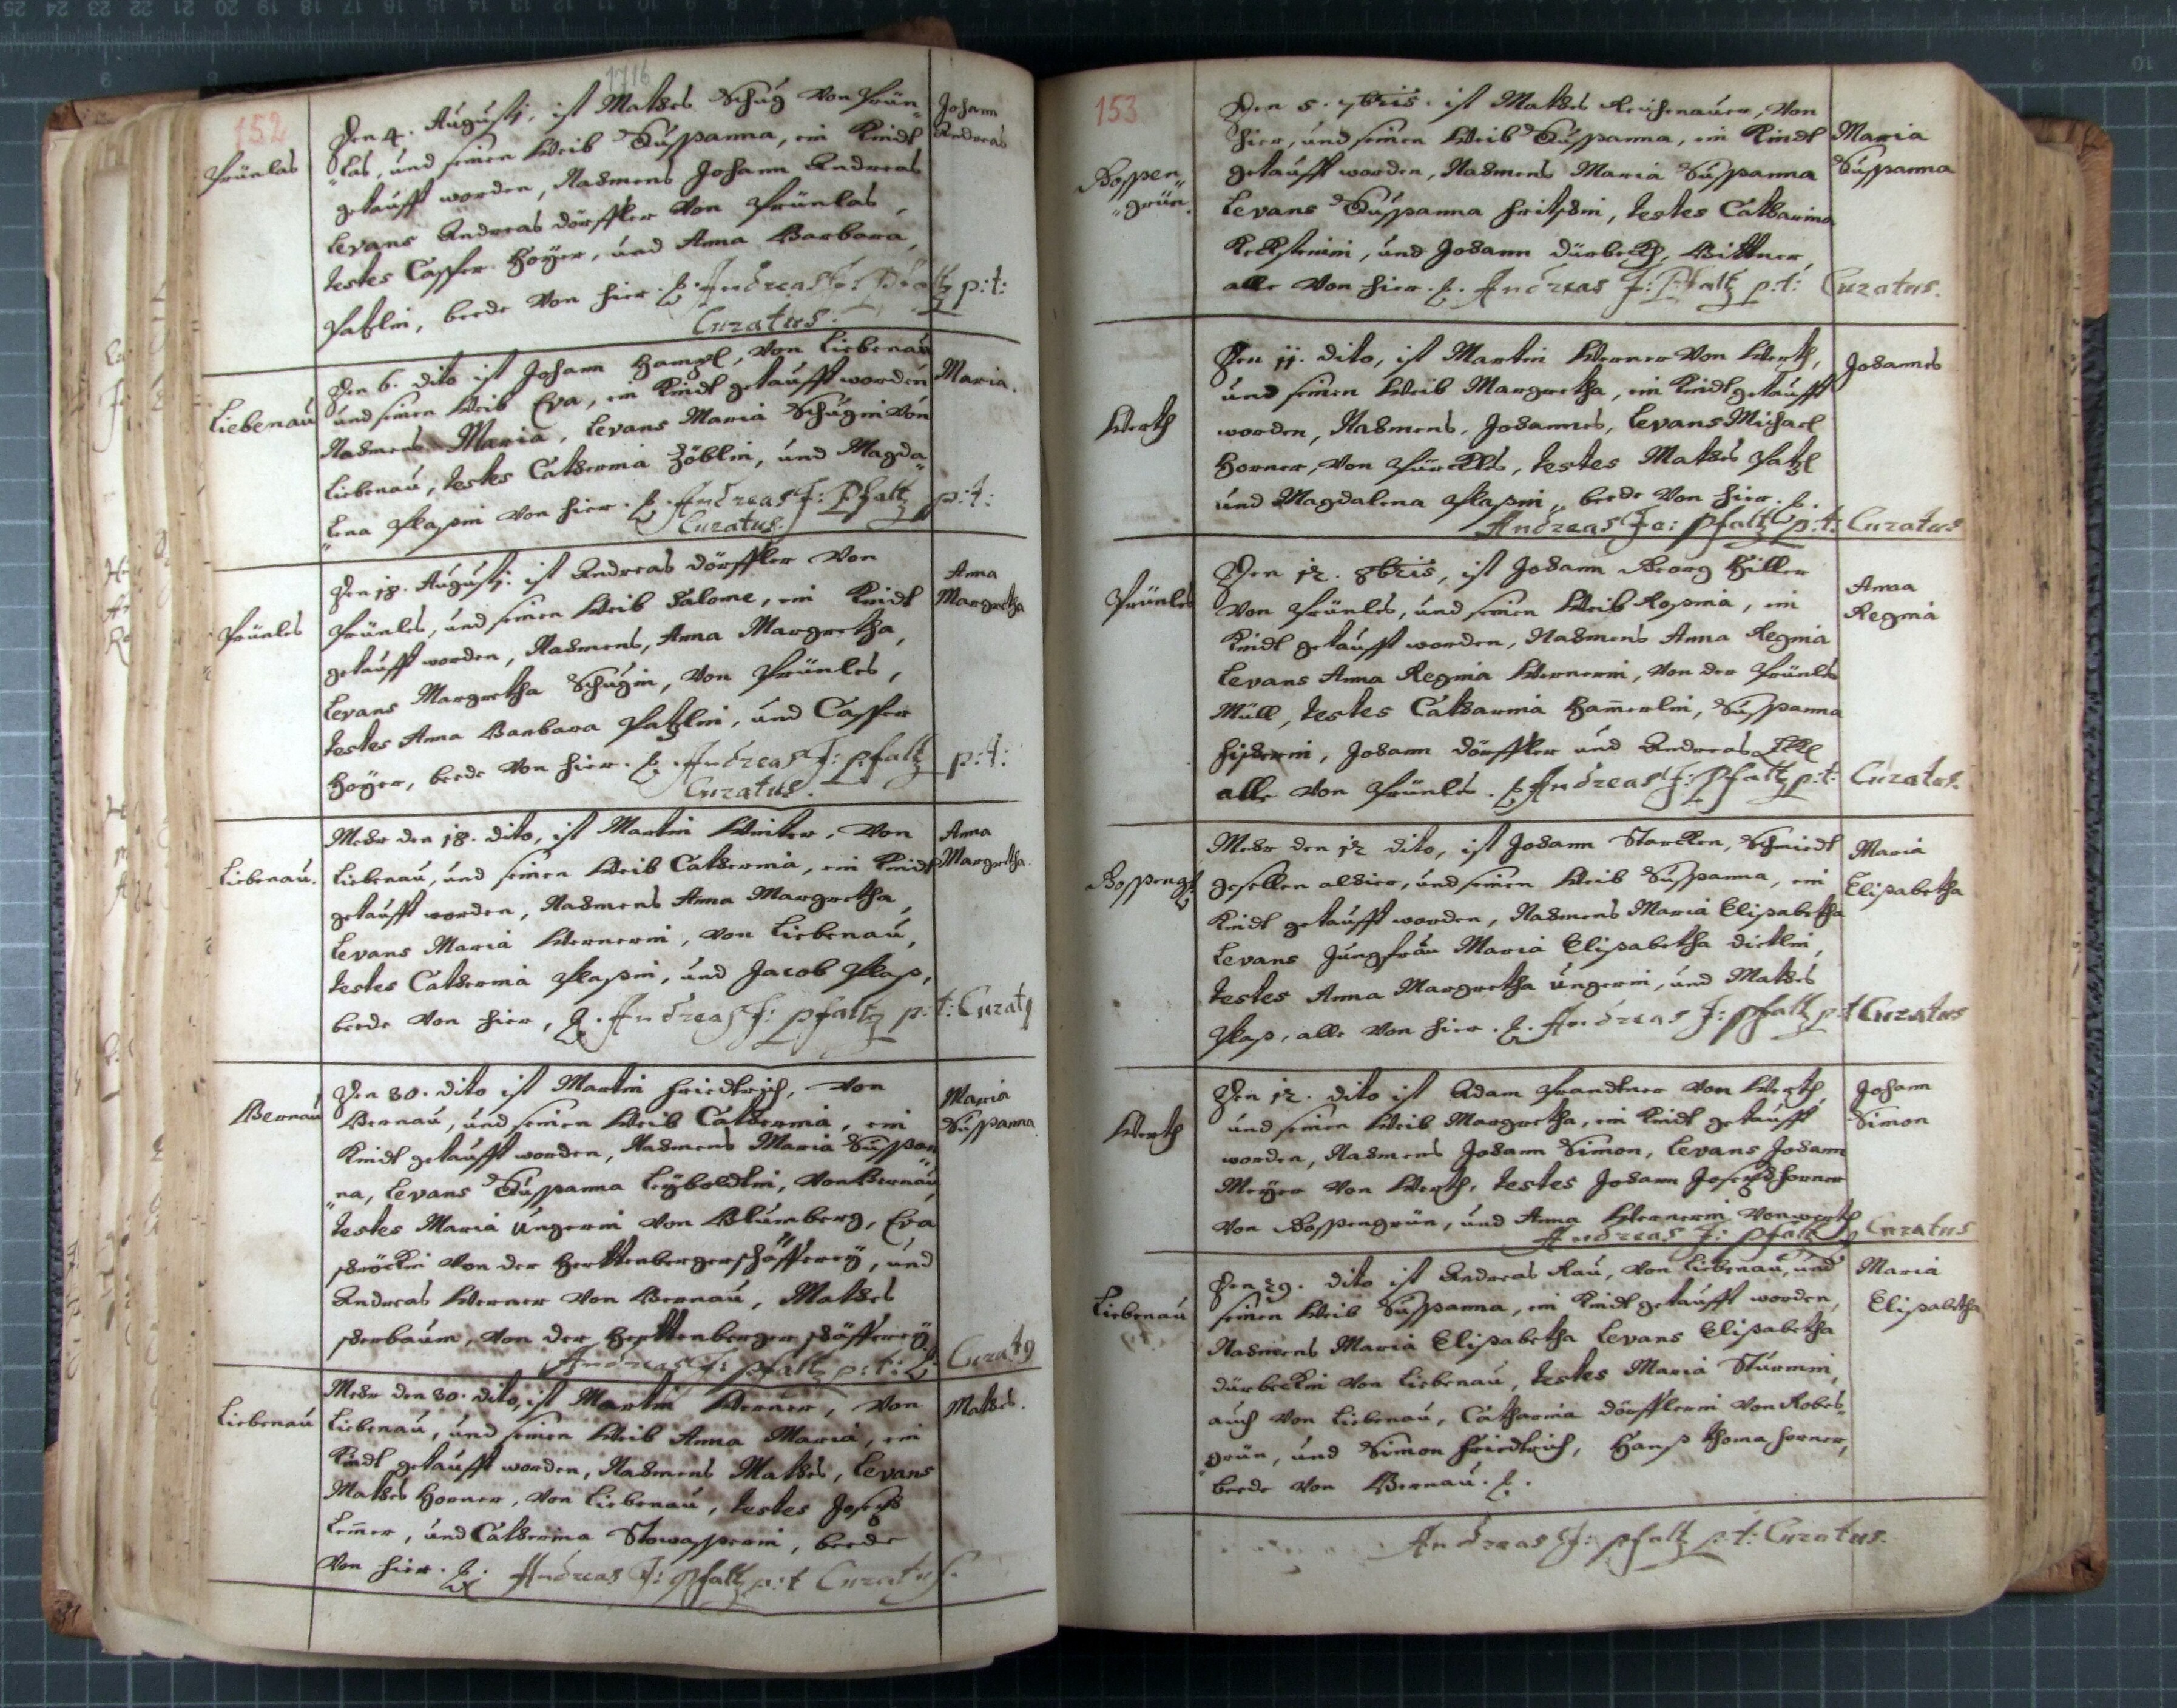 1716
152
Prünlas
Den 4. Augusti, ist Mathes Schug von Prün„
„las, und seinen Weib Susanna, ein Kindt
getaufft worden, Nahmens Johann Andreas
Levans Andreas dörffler von Prünlas,
testes Casper Hoÿer, und Anna Barbara
Patzlin, beede von hier. Andreas J: Pfaltz p:t:
Curatus.
Johann
Andreas
Liebenau
Den 6. dito ist Johann Hampl, von Liebenau
und seinen Weib Eva, ein Kindt getaufft worden
Nahmens Maria, Levans Maria Schugin von
Liebenau, testes Catherina Zöblin, und Magda„
„lena Plaßin von hier. Andreas J: Pfaltz p:t:
Curatus.
Maria.
Prünles
Den 18. Augusti. ist Andreas dörffler von
Prünles, und seinen Weib Salome, ein Kindt
getaufft worden, Nahmens, Anna Margretha,
Levans Margretha Schugin, von Prünles,
testes Anna Barbara Patzlin, und Casper
Hoÿer, beede von hier. Andreas J: pfaltz p:t:
Curatus.
Anna
Margretha
Liebenau.
Mehr den 18. dito, ist Martin Winter, von
Liebenau, und seinen Weib Catherina, ein Kindt
getaufft worden, Nahmens Anna Margretha,
Levans Maria Wernerin, von Liebenau,
testes Catherina Plaßin, und Jacob Plaß,
beede von hier, Andreas J: pfaltz p:t: Curatg
Anna
Margretha.
Bernau
Den 30. dito ist Martin Friedtrich, von
Bernau, und seinen Weib Catherina, ein
Kindt getaufft worden, Nahmens Maria Susan
„na, Levans Susanna Leÿboldtin, von Bernau,
testes Maria Ungerin von Blumberg, Eva
von der Herttenbergerschäfferey, und
Andreas Werner von Bernau, Mathes
von der Herttenberger schäfferey
Andreas J: pfaltz p:t: Curatg
Maria
Susanna
Liebenau
Mehr den 30. dito, ist Martin Werner, von
Liebenau, und seinen Weib Anna Maria, ein
Kindt getaufft worden, Nahmens Mathes, Levans
Mathes Horner, von Liebenau, testes Joseph
Lemer, und Catherina Stowasserin, beede
von hier. Andreas J: Pfaltz p:t Curatus.
Mathes.
153
Bossen„
„grün.
Den 5. 7bris. ist Mathes Reichenauer, von
hier, und seinen Weib Susanna, ein Kindt
getaufft worden, Nahmens Maria Susanna
Levans Susanna Fritschin, testes Catharina
und Johann dürbeckh, Bittner,
alle von hier. Andreas J: Pfaltz p:t: Curatus.
Maria
Susanna
Werth
Den 11. dito, ist Martin Werner von Werth,
und seinen Weib Margretha, ein Kindt getaufft
worden, Nahmens, Johannes, Levans Michael
Horner, von Pürckles, testes Mathes Patzl
und Magdalena Plaßin, beede von hier.
Andreas Jo: pfaltz p:t: Curatus
Johannes
Prünles
Den 12. 8bris, ist Johann Georg Hiller
von Prünles, und seinen Weib Rosina, ein
Kindt getaufft worden, Nahmens Anna Regina
Levans Anna Regina Wernerin, von der Prünles
Müll, testes Catharina Hamerlin, Susanna
Fischerin, Johann dörffler und Andreas
alle von Prünles. Andreas J: Pfaltz p:t: Curatus.
Anna
Regina
Bosseng:
Mehr den 12 dito, ist Johann Starcken, Schmiedt
gesellen alhier, und seinen Weib Susanna, ein
Kindt getaufft worden, Nahmens Maria Elisabetha
Levans Jungfrau Maria Elisabetha dietlin,
testes Anna Margretha Ungerin, und Mathes
Plaß, alle von hier. Andreas J: pfaltz p:t Curatus
Maria
Elisabetha
Werth
Den 12. dito ist Adam Prandtner von Werth,
und seinen Weib Margretha, ein Kindt getaufft
worden, Nahmens Johann Simon, Levans Johann
Meÿer von Werth, testes Johann Joseph Horner
von Bossengrün, und Anna Wernerin von werth
Andreas J: pfaltz Curatus
Johann
Simon
Liebenau
Den 29. dito ist Andreas Rau, von Liebenau, und
seinen Weib Susanna, ein Kindt getaufft worden,
Nahmens Maria Elisabetha Levans Elisabetha
dürbeckin von Liebenau, testes Maria Sturmin,
auch von Liebenau, Catharina dörfflerin von Robes„
„grün, und Simon Friedtrich, Hanß thoma Horner,
beede von Bernau.
Andreas J: pfaltz p:t: Curatus.
Maria
Elisabetha